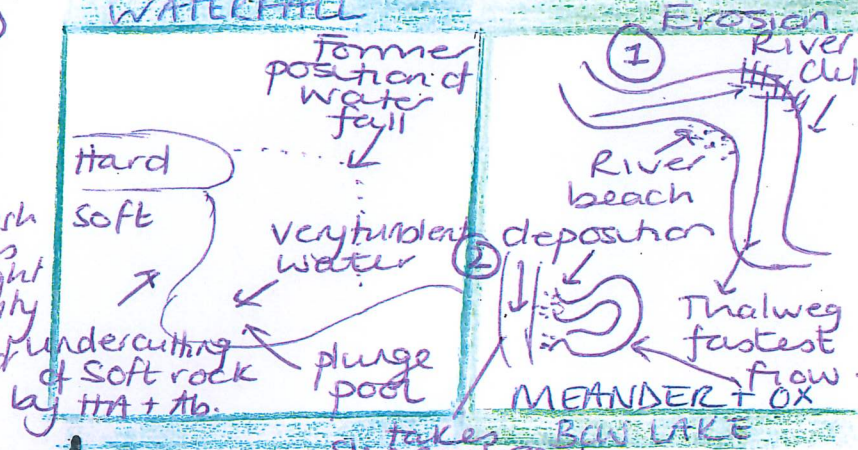 WATERFALL
Former
position of
water
fall
Hard
Soft
very turblent
water
undercutting
of Soft rock
by HA + Ab.
plunge
pool
Erosion
1
River
River
beach
2
deposition
Thalweg
fastest
flow
MEANDER + OX
BOW LAKE
takes